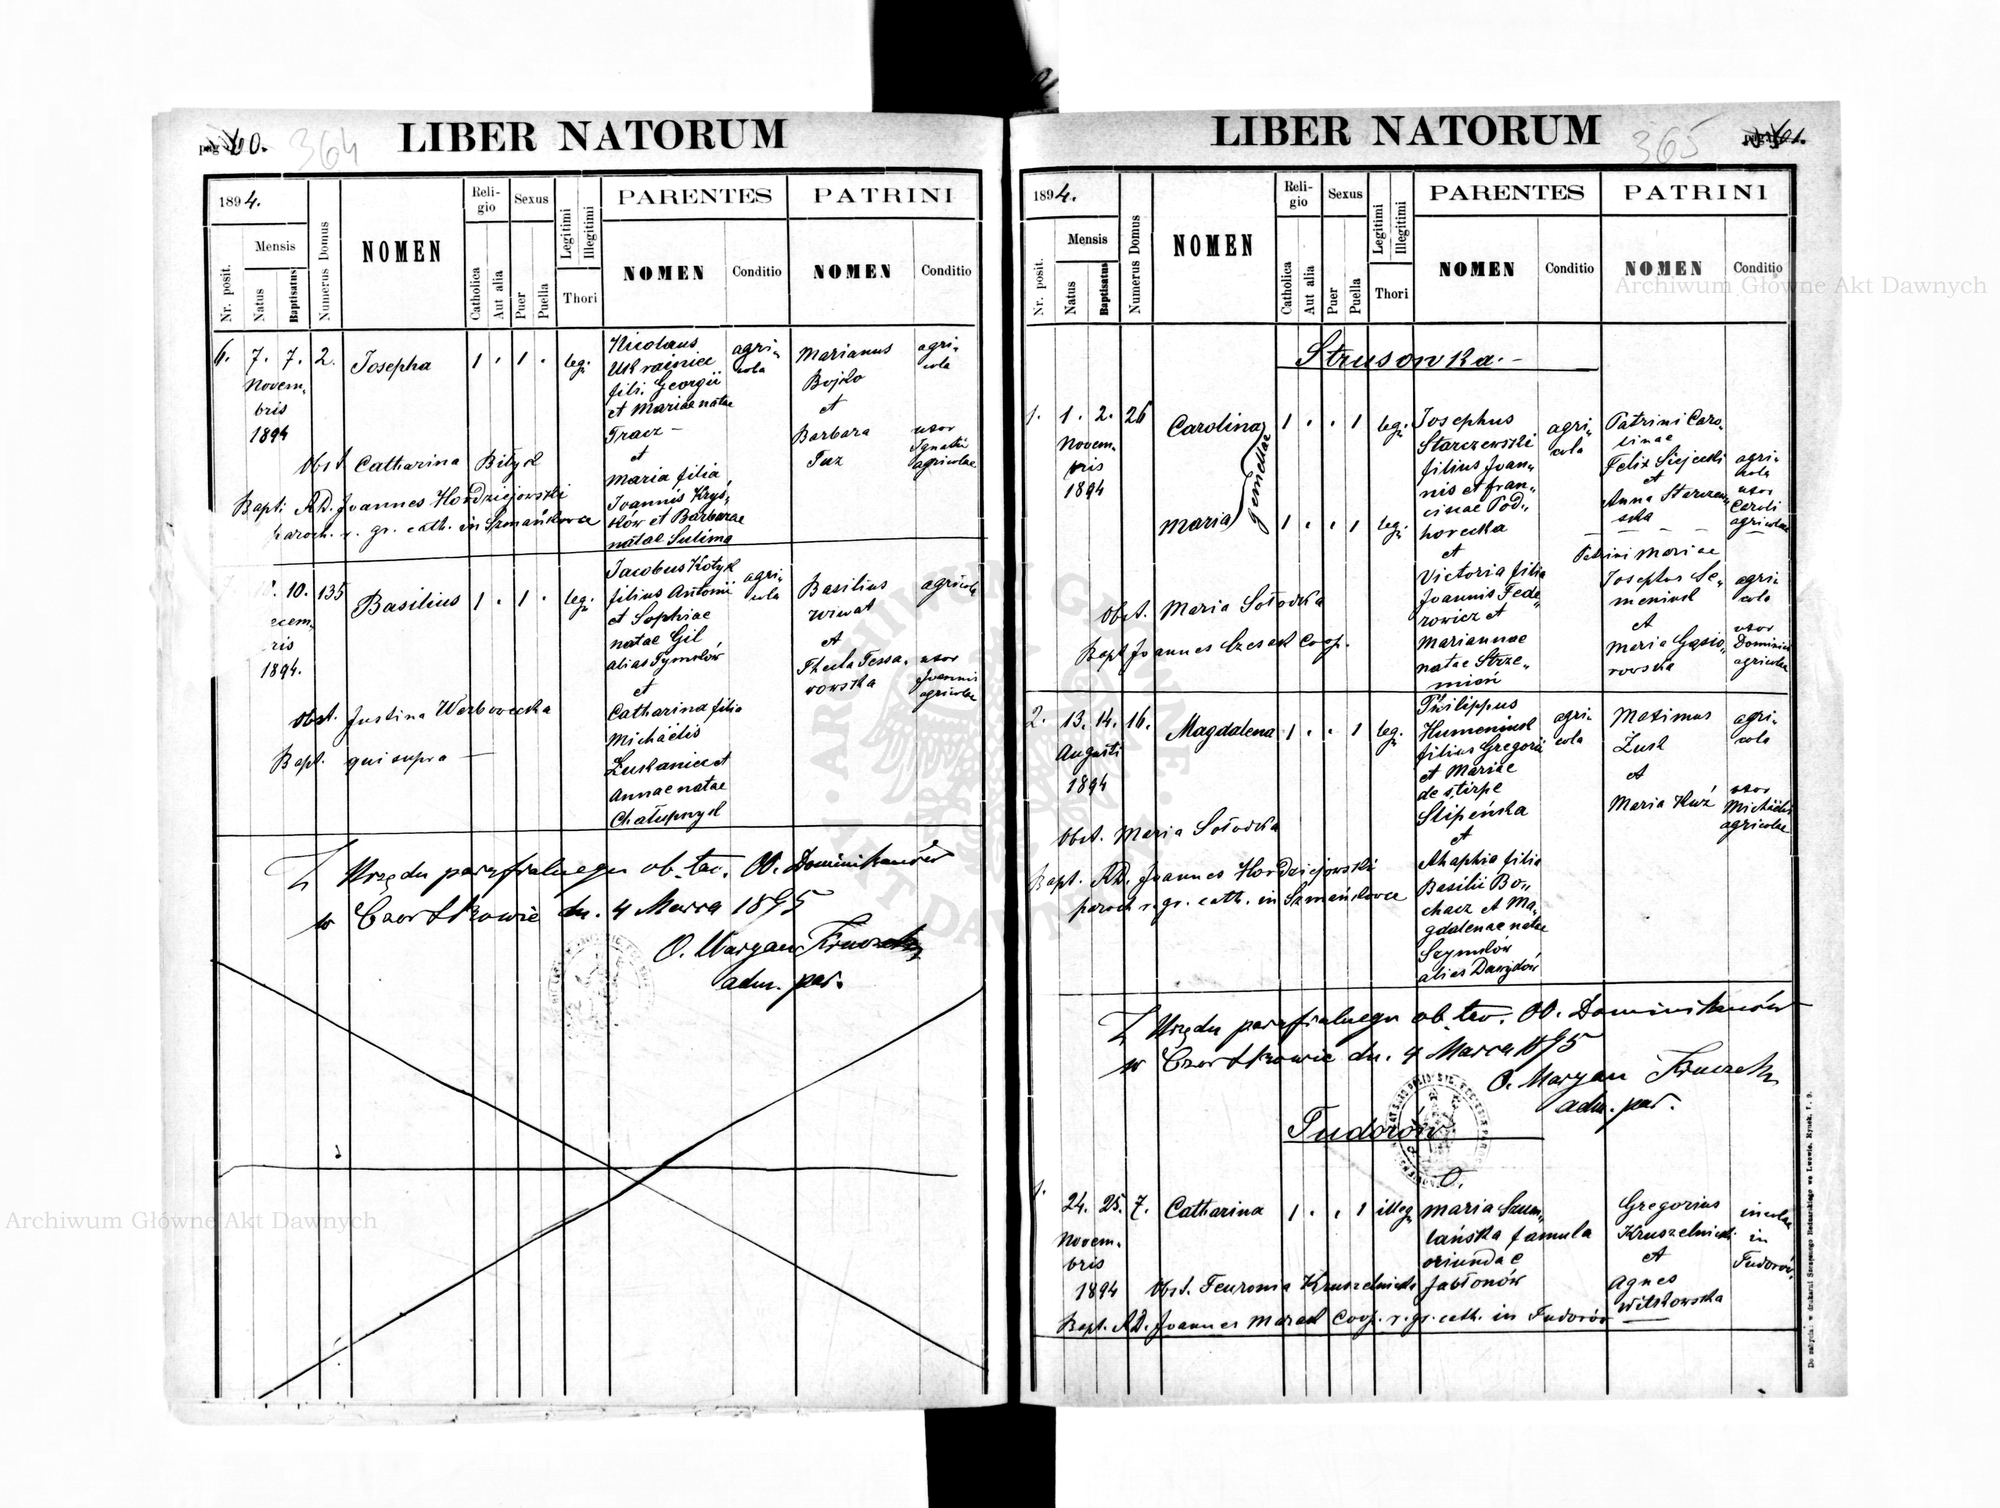 pag. 60. 364
LIBER NATORUM
1894.
Nr. posit.
Mensis
Natus
Baptisatus
Numerus Domus
NOMEN
Religio
Catholica
Aut alia
Sexus
Puer
Puella
Legitimi
Illegitimi
Thori
PARENTES
NOMEN
Conditio
PATRINI
NOMEN
Conditio
6. 7. 7. 2. Josepha 1 . 1 . leg.
Novem-
bris
1894
Nicolaus
Ukrainiec
fili. Georgii
et Mariae natae
Tracz –
et
Maria filia
Joannis Krys-
ków et Barbarae
natae Sulima
agri-
cola
Marianus
Bojko
et
Barbara
Tuz
agri-
cola
uxor
Ignatii
agricolae
Obst. Catharina Biłyk
Bapt: AD. Joannes Hordziejowski
paroch. r. gr. cath. in Szmańkowce
10. 135 Basilius 1 . 1 . leg.
ecem-
ris
1894.
Jacobus Kotyk
filius Antonii
et Sophiae
natae Gil
alias Tymków
et
Catharina filia
Michaelis
Łukaniec et
Annae natae
Chałupnyk
agri-
cola
Basilius
et
Thecla Tessa-
rowska
agricola
uxor
Joannis
agricolae
Obst. Justina Werbowecka
Bapt. qui supra —
Z Urzędu parafialnego ob. łac. OO. Dominikanów
w Czortkowie dn. 4 Marca 1895
O. Maryan
adm. par.
365
LIBER NATORUM
1894.
Nr. posit.
Mensis
Natus
Baptisatus
Numerus Domus
NOMEN
Religio
Catholica
Aut alia
Sexus
Puer
Puella
Legitimi
Illegitimi
Thori
PARENTES
NOMEN
Conditio
PATRINI
NOMEN
Conditio
Strusowka.–
1. 1. 2. 26 Carolina 1 . . 1 leg.
Novem-
bris
1894
gemellae
Maria 1 . . 1 leg.
Josephus
Starczewski
filius Joan-
nis et Fran-
ciscae Pod-
horecka
et
Victoria filia
Joannis Fede-
rowicz et
Mariannae
natae Strze-
mień
agri-
cola
Patrini Caro-
linae
Felix Siejecki
et
Anna Starczew-
ska
agri-
cola
uxor
Caroli
agricolae
Patrini Mariae
Josephus Se-
meniuk
et
Maria Gąsio-
rowska
agri-
cola
uxor
Dominici
agricolae
Obst. Maria Sołowka
Bapt Joannes Szesak Coop.
2. 13. 14. 16. Magdalena 1 . . 1 leg.
Augusti
1894
Philippus
Humeniuk
filius Gregorii
et Mariae
de stirpe
Slipeńska
et
Ahaphia filia
Basilii Bo-
chacz et Ma-
gdalenae natae
Szymków
alias Dawydów
agri-
cola
Maximus
Żuk
et
Maria Huź
agri-
cola
uxor
Michaelis
agricolae
Obst. Maria Sołowka
Bapt. AD. Joannes Hordziejowski
paroch r. gr. cath. in Szmańkowce
Z Urzędu parafialnego ob. łac. OO. Dominikanów
w Czortkowie dn. 4 Marca 1895
O. Maryan
adm. par.
Tudorów
1. 24. 25. 7. Catharina 1 . . 1 illeg.
Novem-
bris
1894
Maria Szum-
lańska famula
oriunda e
Jabłonów
Gregorius
Kruszelnicki
et
Agnes
Witkowska
incolae
in
Tudorów
Obst. Feuronia Kruszelnicka
Bapt. AD. Joannes Marak Coop. r. gr. cath. in Tudorów
Archiwum Główne Akt Dawnych
Archiwum Główne Akt Dawnych